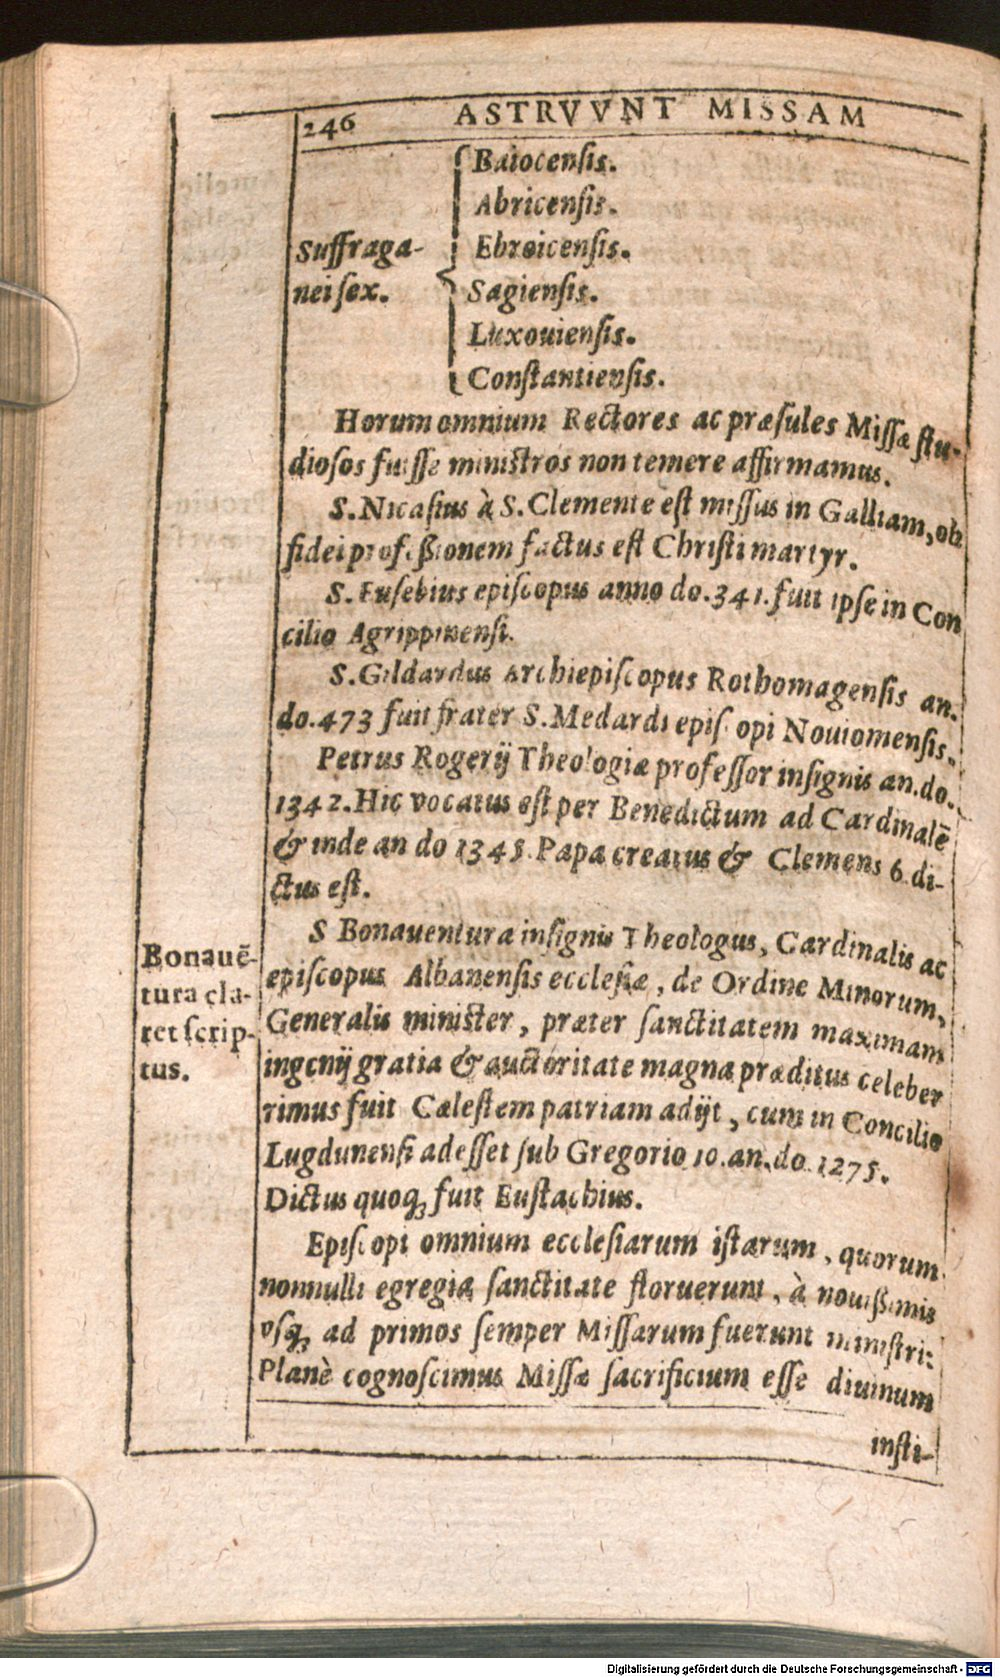 246 ASTRVVNT MISSAM
Baiocensis.
Abricensis.
Suffraga- Ebroicensis.
nei sex. Sagiensis.
Luxouiensis.
Constantiensis.
Horum omnium Rectores ac præsules Missæ stu-
diosos fuisse ministros non temere affirmamus.
S. Nicasius à S. Clemente est missus in Galliam, ob
fidei professionem factus est Christi martyr.
S. Eusebius episcopus anno do. 341. fuit ipse in Con
cilio Agrippinensi.
S. Gildardus Archiepiscopus Rothomagensis an.
do. 473 fuit frater S. Medardi episcopi Nouiomensis.
Petrus Rogerij Theologiæ professor insignis an. do.
1342. Hic vocatus est per Benedictum ad Cardinalē
& inde an do 1345. Papa creatus & Clemens 6. di-
ctus est.
S Bonauentura insignis Theologus, Cardinalis ac
Bonauē-
tura cla-
ret scrip-
tus.
episcopus Albanensis ecclesiæ, de Ordine Minorum,
Generalis minister, præter sanctitatem maximam
ingenij gratia & auctoritate magna præditus celeber
rimus fuit Cælestem patriam adijt, cum in Concilio
Lugdunensi adesset sub Gregorio 10. an. do. 1275.
Dictus quoq; fuit Eustachius.
Episcopi omnium ecclesiarum istarum, quorum
nonnulli egregia sanctitate floruerunt, à nouissimis
vsq; ad primos semper Missarum fuerunt ministri:
Planè cognoscimus Missæ sacrificium esse diuinum
insti-
Digitalisierung gefördert durch die Deutsche Forschungsgemeinschaft - DFG